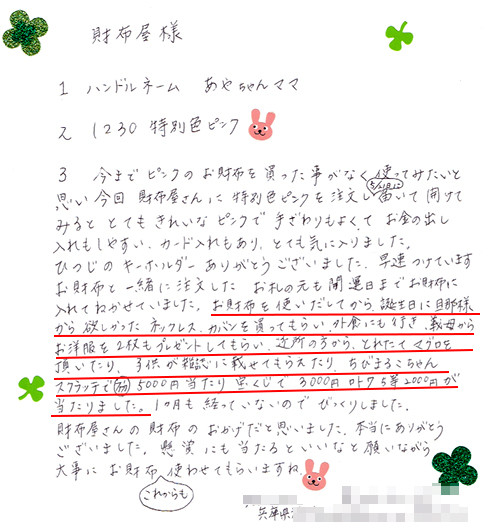 財布屋様
1 ハンドルネーム あやちゃんママ
2 1230 特別色ピンク
3 今までピンクのお財布を買った事がなく使ってみたいと
思い今回財布屋さんに特別色ピンクを注文し届いて開けて
みると とてもきれいなピンクで手ざわりもよくて お金の出し
入れもしやすい、カード入れもあり、とても気に入りました。
ひつじのキーホルダー ありがとうございました。早速つけています
お財布と一緒に注文した お札の元も開運日までお財布に
入れてねかせていました。お財布を使いだしてから、誕生日に旦那様
から欲しかったネックレス、カバンを買ってもらい、外食にも行き、義母から
お洋服を2枚もプレゼントしてもらい、近所の方から、とれたてマグロを
頂いたり、子供が雑誌に載せてもらえたり、ちびまるこちゃん
スクラッチで 5000円当たり 宝くじで 3000円 ロト7 5等 2000円が
当たりました。1ヶ月も経っていないのでびっくりしました。
財布屋さんの財布のおかげだと思いました。本当にありがとう
ございました。懸賞にも当たるといいなと願いながら
大事にお財布、使わせてもらいますね。
これからも
兵庫県